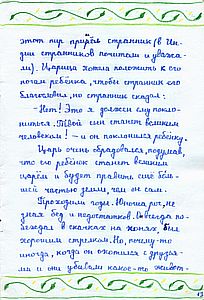 этот пир пришёл странник (в Ин-
дии странников почитали и уважа-
ли). Царица хотела положить к его
ногам ребёнка, чтобы странник его
благословил, но странник сказал:
– Нет! Это я должен ему покло-
ниться. Твой сын станет великим
человеком! – и он поклонился ребёнку.
Царь очень обрадовался, подумав,
что его ребёнок станет великим
царём и будет править ещё боль-
шей частью земли, чем он сам.
Проходили годы. Юноша рос, не
зная бед и недостатков. Он всегда по-
беждал в скачках на конях, был
хорошим стрелком. Но, почему-то
иногда, когда он охотился с друзья-
ми и они убивали какое-то живот-